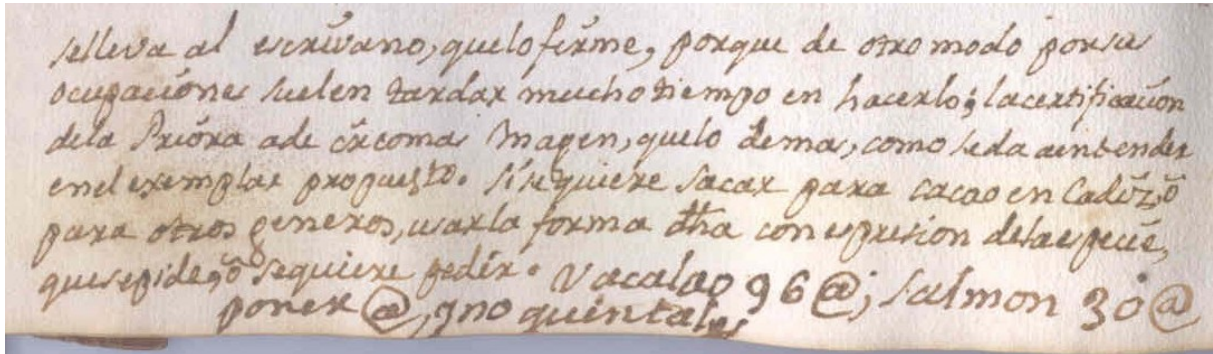 selleva al escrivano, quelo firme, porque de otro modo porsus
ocupaciones suelen tardar mucho tiempo en hacerlo; lacertificacion
dela Priora ade ir con mas Margen, quelo demas, como seda aentender
enel exemplar propuesto. Si sequiere sacar para cacao en Cadiz, ô
para otros generos, usar la forma dha con espresion delaespecie,
quesepide, ô sequiere pedir. Vacalao 96 @; Salmon 30 @
poner @, y no quintales